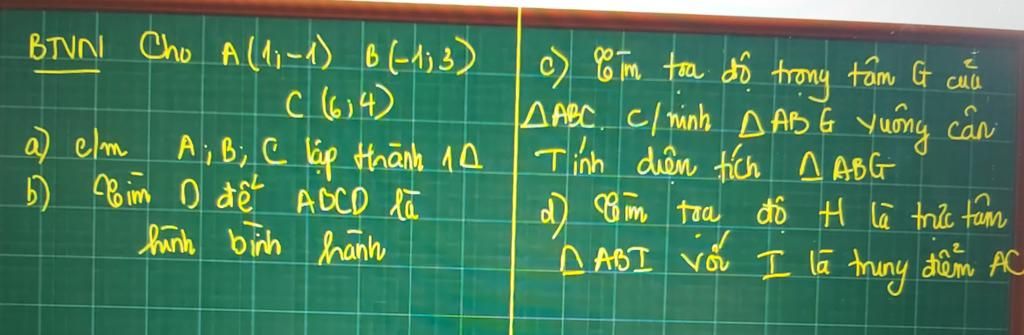 BTVN Cho A(1;-1) B(-1;3)
C(6;4)
a) c/m A;B;C lập thành 1Δ
b) Tìm D để ABCD là
hình bình hành
c) Tìm tọa độ trọng tâm G của
ΔABC. C/minh ΔABG vuông cân
Tính diện tích ΔABG
d) Tìm tọa độ H là trực tâm
ΔABI với I là trung điểm AC